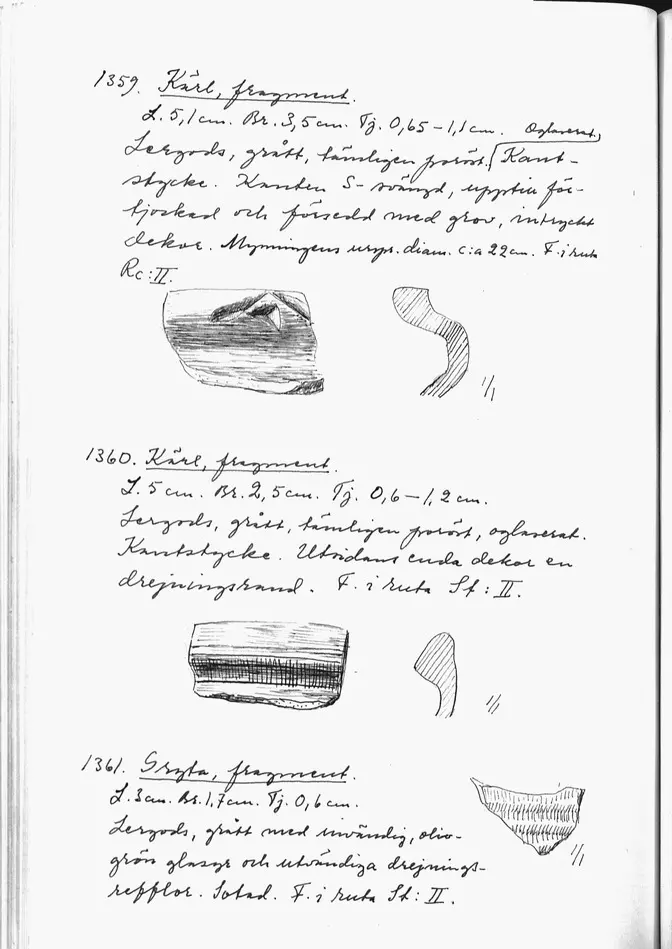 1359. Kärl, fragment.
L. 5,1 cm. Br. 3,5 cm. Tj. 0,65-1,1 cm. Oglaserat.
Lergods, grått, tämligen poröst. Kant-
stycke. Kanten S-svängd, upptill för-
tjockad och försedd med grov, intryckt
dekor. Mynningens urspr. diam. c:a 22 cm. F. i ruta
Rc:II.
1/1
1360. Kärl, fragment.
L. 5 cm. Br. 2,5 cm. Tj. 0,6-1,2 cm.
Lergods, grått, tämligen poröst, oglaserat.
Kantstycke. Utsidans enda dekor en
drejningsrand. F. i ruta Sf:II.
1/1
1361. Gryta, fragment.
L. 3 cm. Br. 1,7 cm. Tj. 0,6 cm.
Lergods, grått med invändig, oliv-
grön glasyr och utvändiga drejnings-
refflor. Sotad. F. i ruta St:II.
1/1